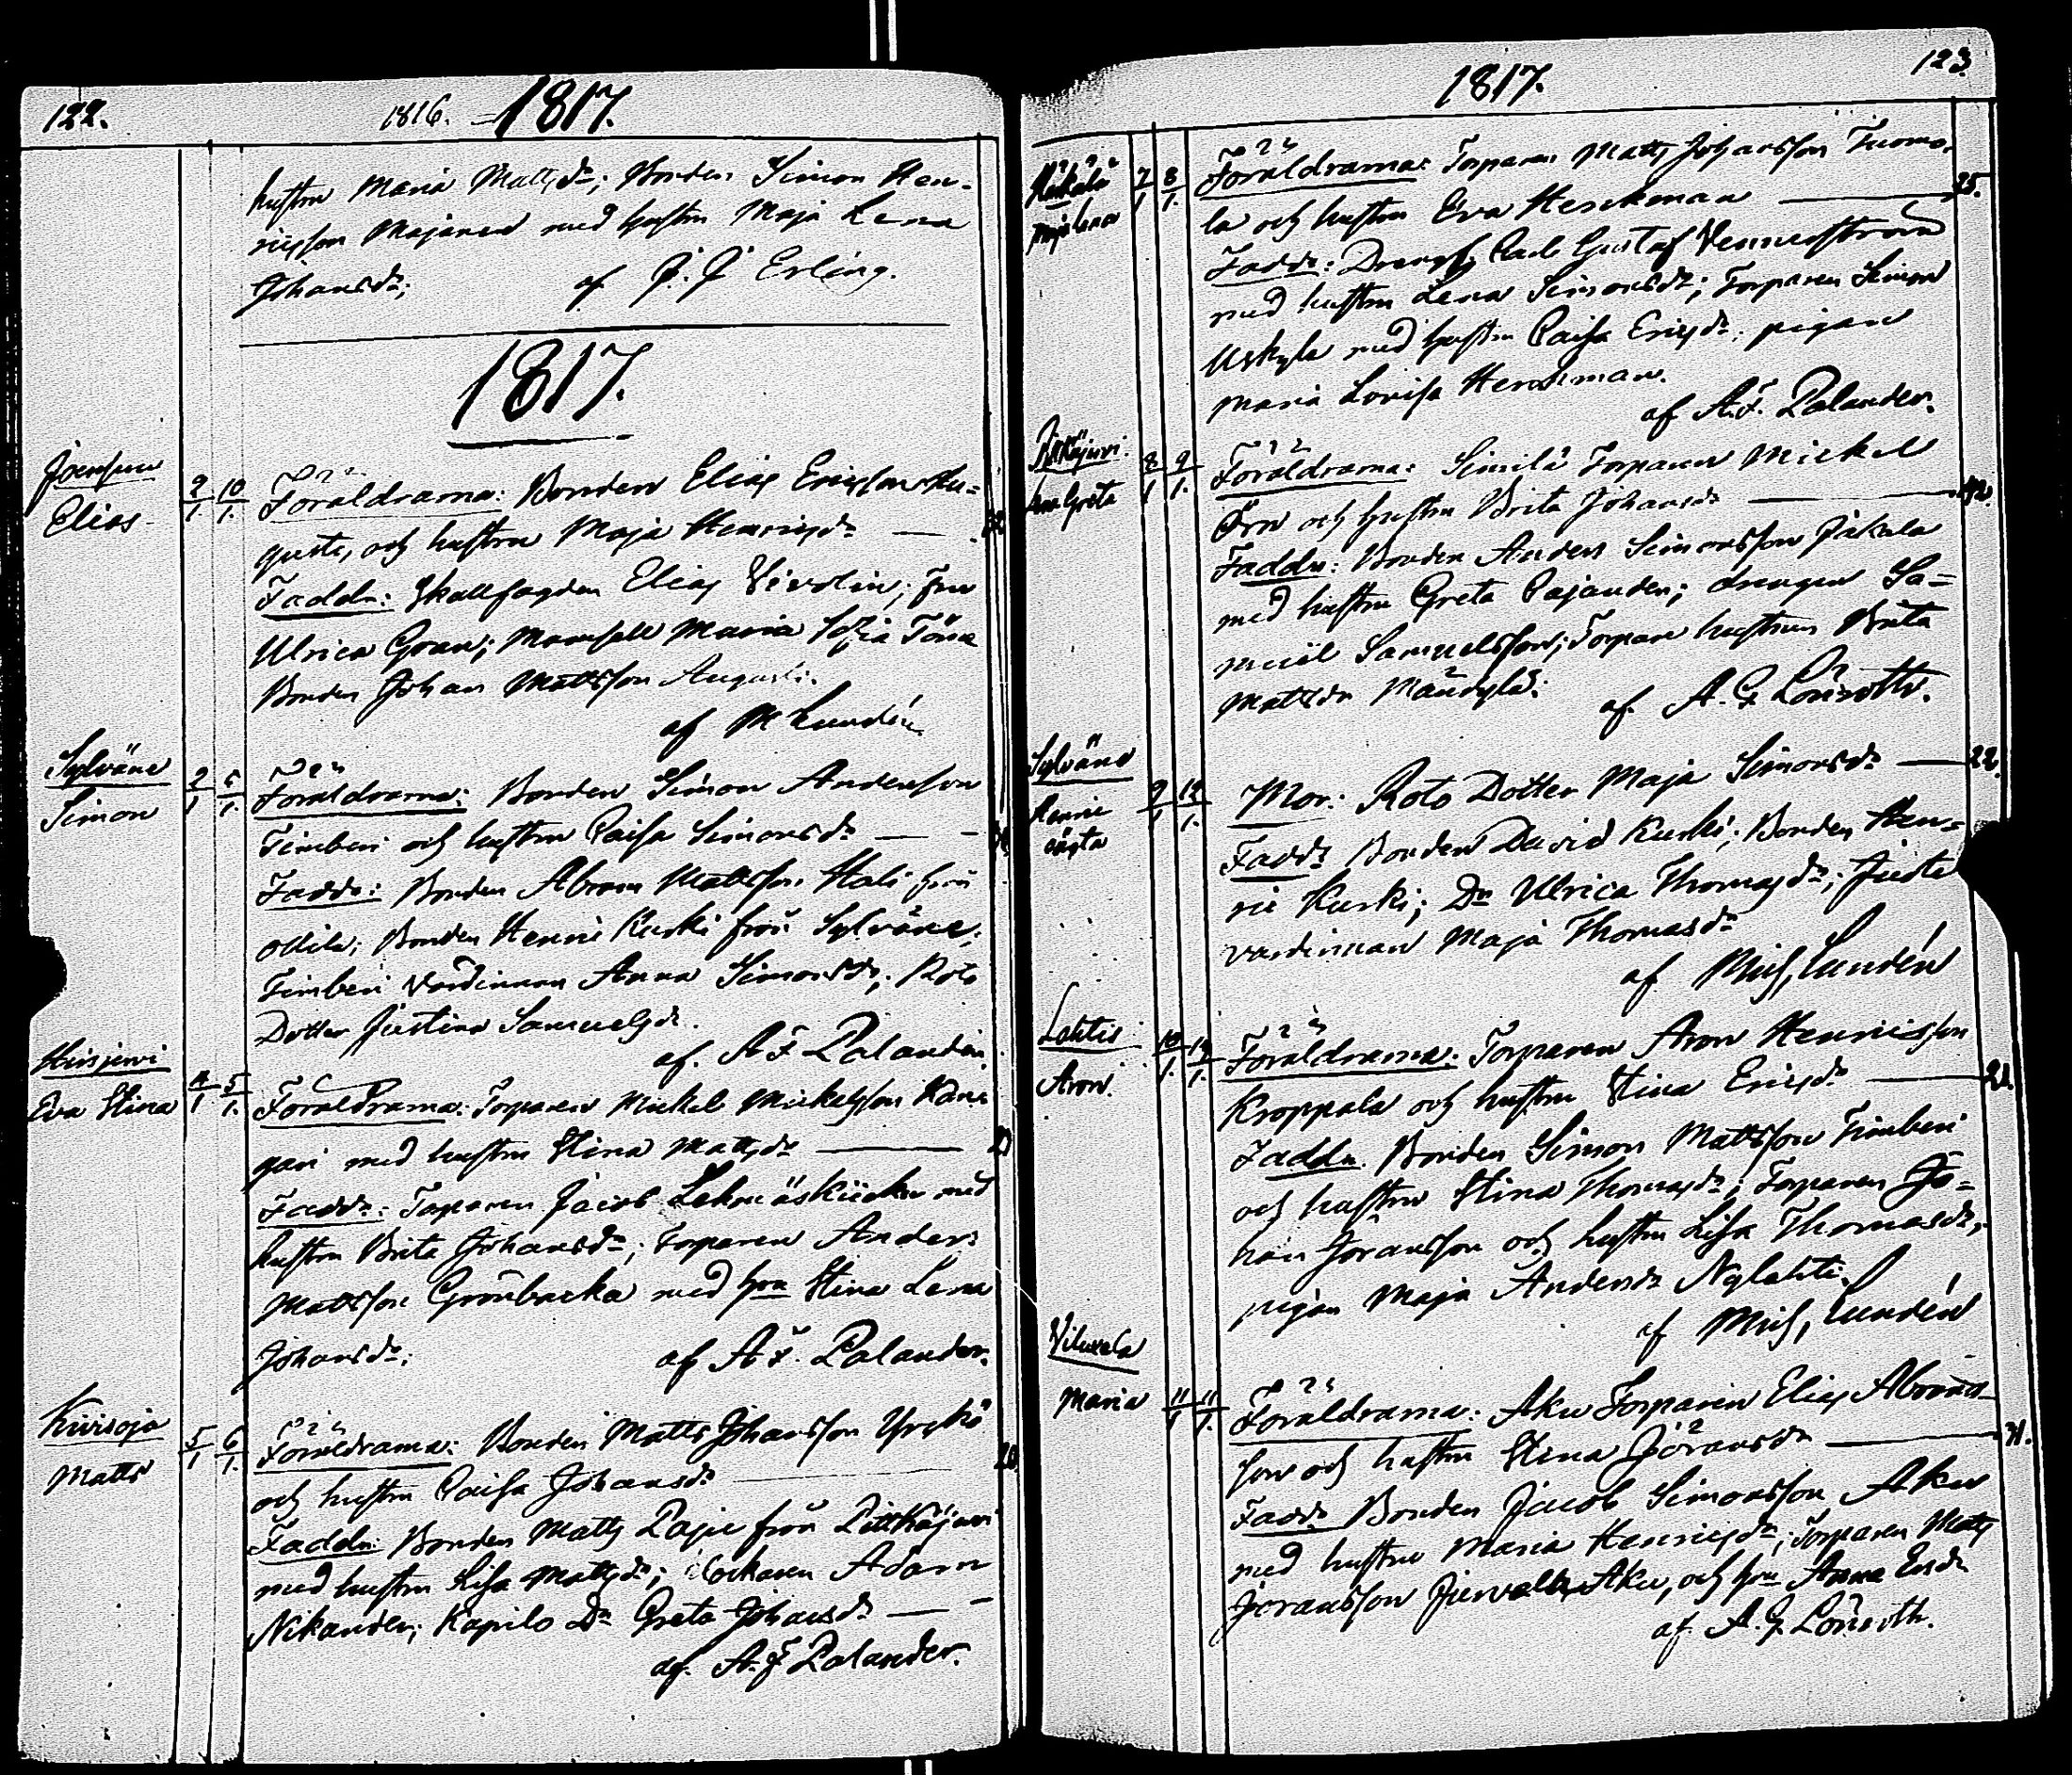 122.
1816. – 1817.
hustru Maria Mattsdr; Bonden Simon Hen-
ricsson Majanen med hustru Maja Lena
Johansdr; af J. J. Erling.
1817.
Joensuu
Elias
2/1 10/1.
Föräldrarna: Bonden Elias Ericsson Au-
gusti, och hustru Maja Henricsdr —
Faddr: Skallfogden Elias Fivolin; Fru
Ulrica Gran; Mamsell Maria Sofia
Bonden Johan Mattsson Augusti.
af M Lundén
Sylvänä
Simon
2/1 5/1.
Föräldrarna: Bonden Simon Andersson
Timberi och hustru Caisa Simonsdr —
Faddr: Bonden Abram Mattsson Hali från
Ollila; Bonden Henric Kurki från Sylvänä;
Timberi värdinnan Anna Simonsdr; Roto
Dotter Justina Samuelsdr.
af. A F Palander.
Hirsjervi
Eva Stina
4/1 5/1.
Föräldrarna: Torparen Mickel Mickelsson Kan-
gari med hustru Stina Mattsdr —
Faddr: Torparen Jacob med
hustru Brita Johansdr; Torparen Anders
Mattsson Grönbacka med hru Stina Lena
Johansdr; af A F. Palander.
Kivisoja
Matts
5/1 6/1.
Föräldrarna: Bonden Matts Johansson Yrckö
och hustru Caisa Johansdr 28
Faddr: Bonden Matts Paju från Pittkäjervi
med hustru Lisa Mattsdr; Klockaren Adam
Nikander; Kapilo Dr Greta Johansdr — —
af. A. F Palander.
1817.
123.
Häkälä
Maja Lena
7/1 8/1.
Föräldrarna: Torparen Matts Johansson Tuomo-
la och hustru Eva Herckman — 25.
Faddr: Drengen Carl Gustaf Vennerström
med hustru Lena Simonsdr; Torparen Simon
Uskyla med hustru Caisa Ericsdr; pigan
Maria Lovisa Herckman.
af A. F. Palander.
Pitkäjervi.
Ana Greta
8/1 9/1.
Föräldrarna: Similä Torparen Mickel
Örn och hustru Brita Johansdr —
Faddr: Bonden Anders Simonsson Jakala
med hustru Greta Cajander; drengen Sa-
muel Samuelsson; Torpare hustrun Brita
Mattsdr Mändylä;
af. A. G Lönroth.
Sylvänä
Henric
oägta
9/1 12/1.
Mor: Roto Dotter Maja Simonsdr — 22.
Faddr Bonden David Kurki; Bonden Hen-
ric Kurki; Dr Ulrica Thomasdr; Juste
värdinnan Maja Thomasdr
af Mich, Lundén
Lahtis
Aron.
10/1. 12/1.
Föräldrarna: Torparen Aron Henricsson
Kroppala och hustru Stina Ericsdr —
Faddr. Bonden Simon Mattsson Timberi
och hustru Stina Thomasdr; Torparen Jo-
han Göransson och hustru Lisa Thomasdr,
pigan Maja Andersdr Nylahti
af Mich, Lundén
Viluxela
Maria
11/1 11/1.
Föräldrarna: Aku Torparen Elias Abrams
son och hustru Stina Göransdr — 31.
Faddr Bonden Jacob Simonsson Aku
med hustru Maria Henricsdr; Torparen Matts
Göransson Aku, och hru Anna Ersdr
af. A. G. Lönroth.